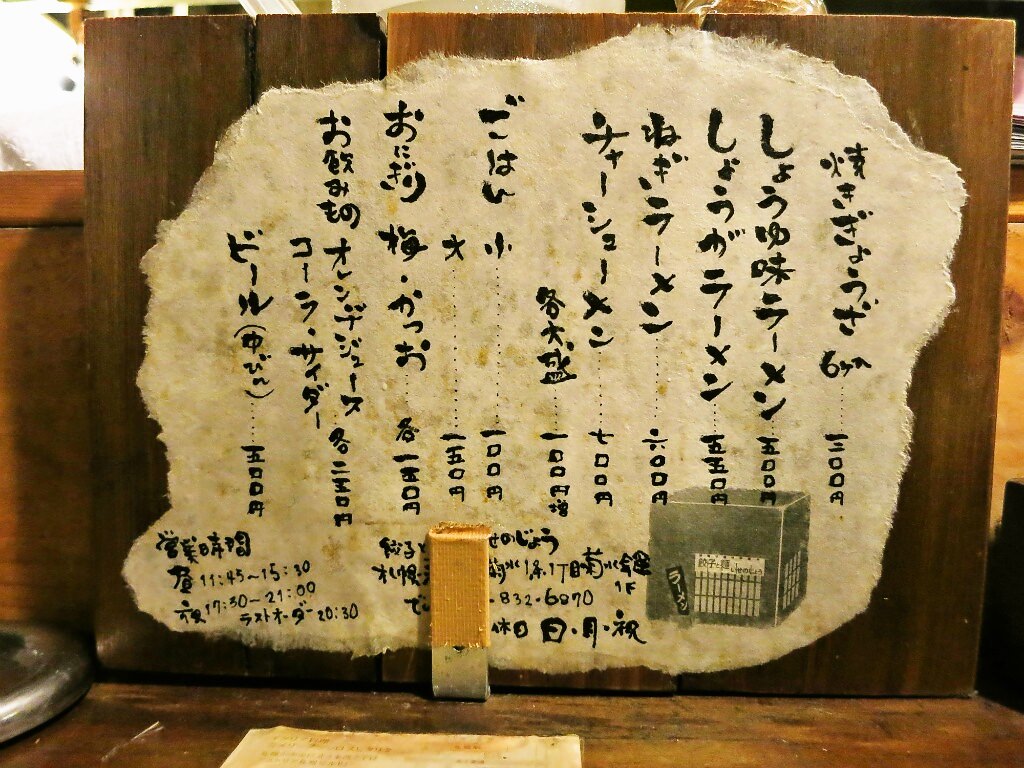 焼きぎょうざ 6ヶ入 三〇〇円
しょうゆ味ラーメン 五〇〇円
しょうがラーメン 五五〇円
ねぎラーメン 六〇〇円
チャーシューメン 七〇〇円
各大盛 一〇〇円増
ごはん 小 一〇〇円
大 一五〇円
おにぎり 梅・かつお 各一五〇円
お飲みもの オレンヂジュース
コーラ・サイダー 各二五〇円
ビール（中びん） 五〇〇円
営業時間
昼 11:45〜15:30
夜 17:30〜21:00
ラストオーダー 20:30
餃子と せのじょう
札幌 菊水1条1丁目菊水会館
1F
で 832-6870
休日 日・月・祝
餃子と麺 いせのじょう
ラーメン